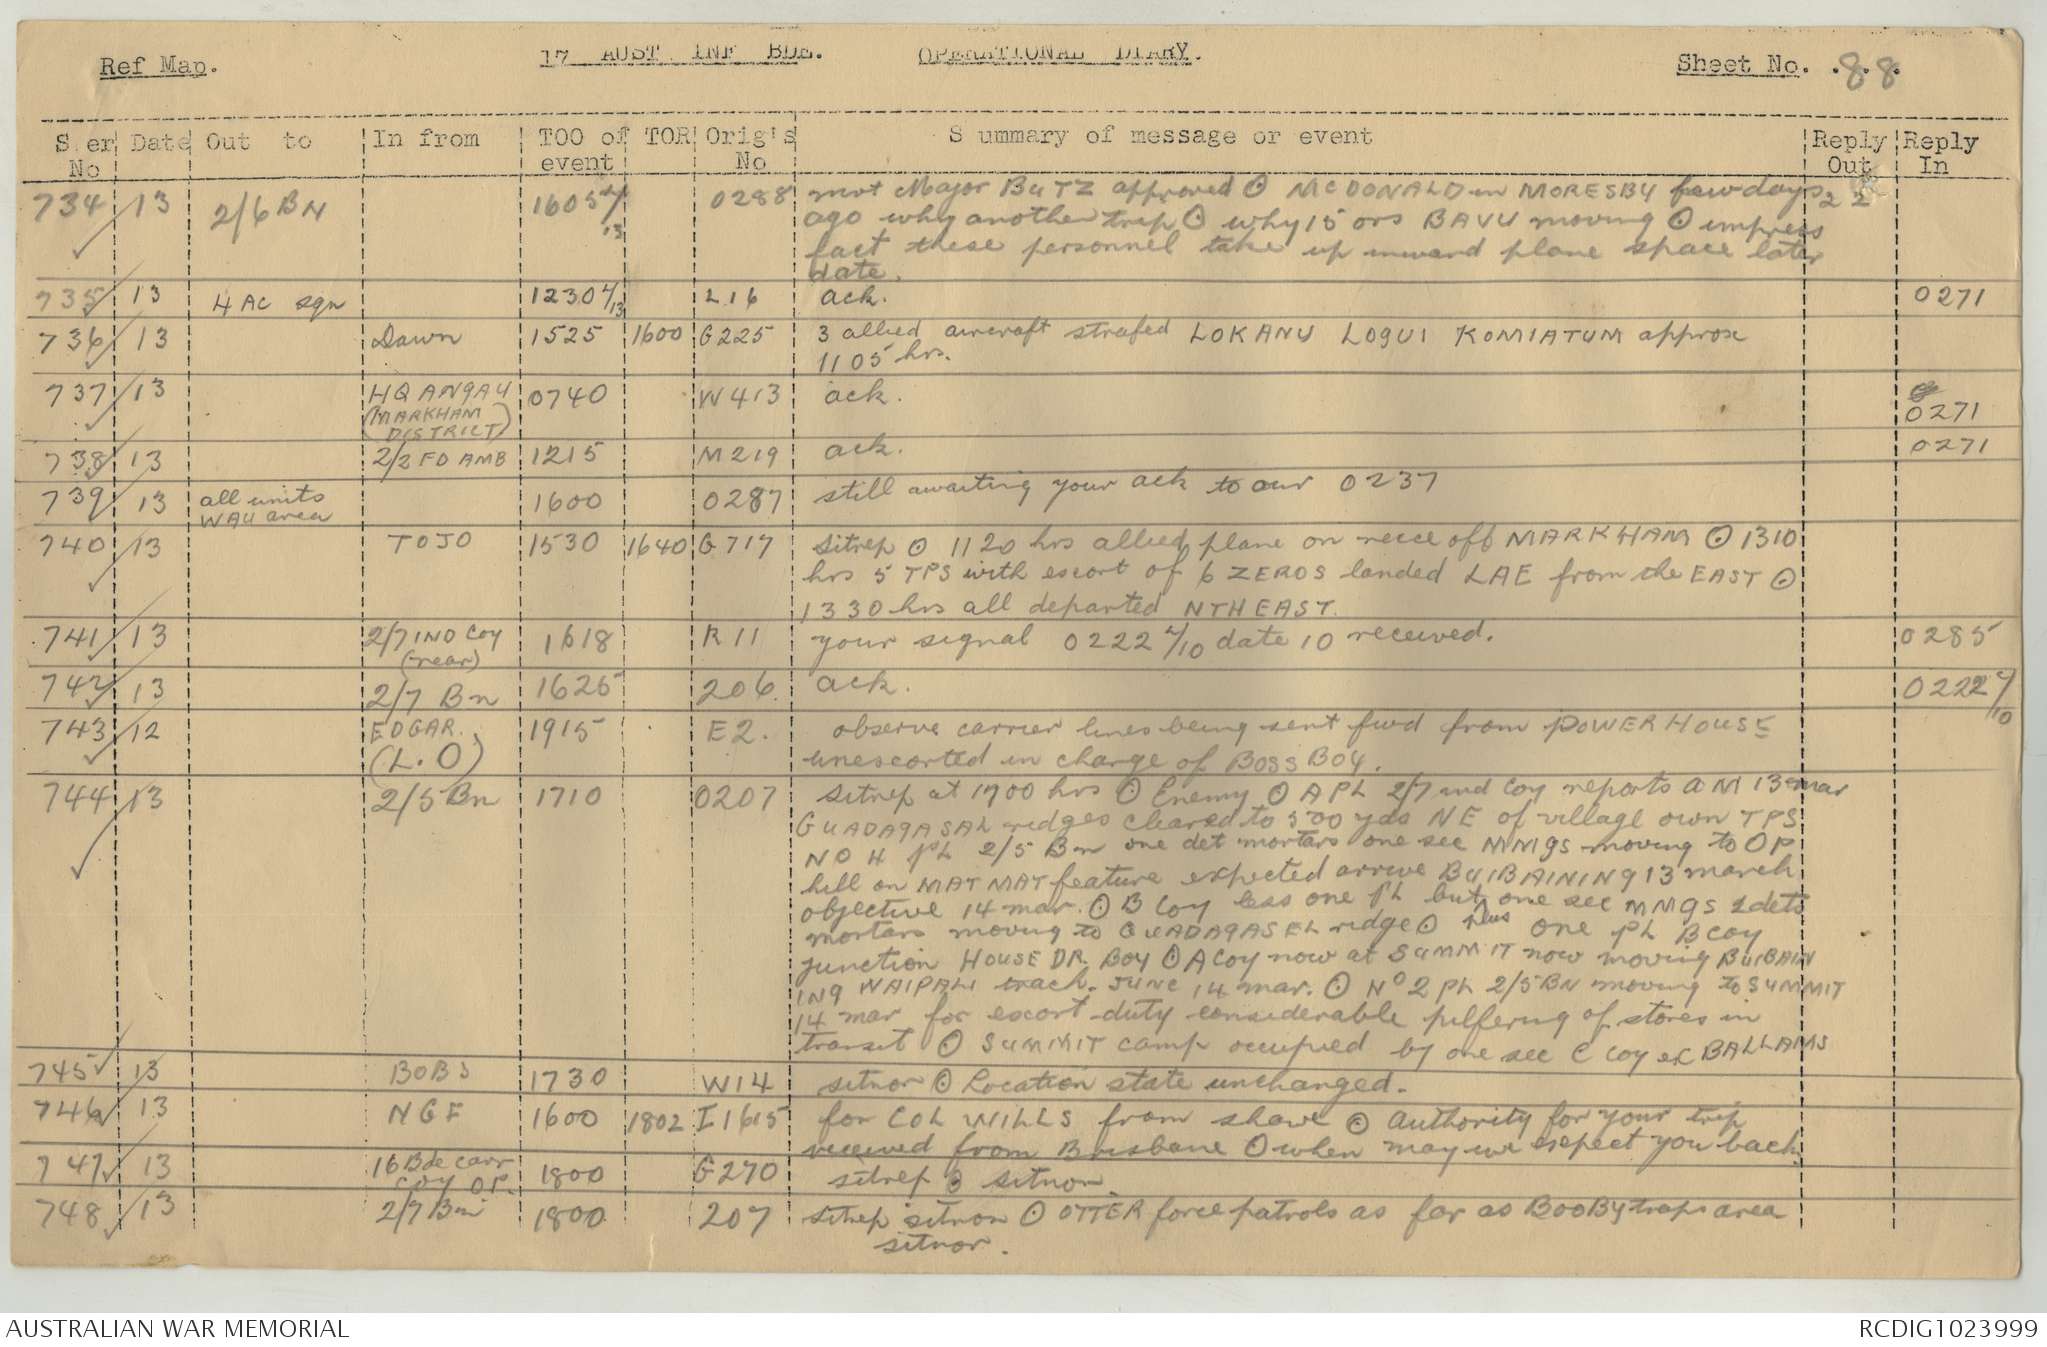 Ref Map. 17 AUST INF BDE. OPERATIONAL DIARY. Sheet No. 88
Ser No Date Out to In from TOO of event TOR Orig's No Summary of message or event Reply Out Reply In
734 13 2/6 BN 1605 4/13 0288 mvt Major BUTZ approved ⊙ MCDONALD in MORESBY few days 22
ago why another trip ⊙ why 15 ors BAVU moving ⊙ impress
fact these personnel take up inward plane space later
date.
735 13 4 AC sqn 1230 4/13 L16 ack. 0271
736 13 Dawn 1525 1600 G225 3 allied aircraft strafed LOKANU LOGUI KOMIATUM approx
1105 hrs.
737 13 HQ ANGAU 0740 W413 ack.
(MARKHAM DISTRICT) 0271
738 13 2/2 FD AMB 1215 M219 ack. 0271
739 13 all units WAU area 1600 0287 still awaiting your ack to our 0237
740 13 TOJO 1530 1640 G717 sitrep ⊙ 1120 hrs allied plane on recce off MARKHAM ⊙ 1310
hrs 5 TPS with escort of 6 ZEROS landed LAE from the EAST ⊙
1330 hrs all departed NTH EAST.
741 13 2/7 IND COY (rear) 1618 R11 your signal 0222 4/10 date 10 received. 0285
742 13 2/7 Bn 1625 206 ack. 0222 4/10
743 12 EDGAR. (L.O) 1915 E2. observe carrier lines being sent fwd from POWER HOUSE
unescorted in charge of BOSS BOY.
744 13 2/5 Bn 1710 0207 sitrep at 1700 hrs ⊙ Enemy ⊙ A PL 2/7 ind Coy reports AM 13 mar
GUADAGASAL ridges cleared to 500 yds NE of village own TPS
NO 4 PL 2/5 Bn one det mortars one sec MMGS moving to OP
hill on MAT MAT feature expected arrive BUIBAINING 13 march
objective 14 mar. ⊙ B Coy less one PL but one sec MMGS 2 dets
mortars moving to GUADAGASEL ridge ⊙ plus one PL B coy
junction HOUSE DR. BOY ⊙ A Coy now at SUMMIT now moving BUIBAIN
ING WAIPALI track. JUNC 14 mar. ⊙ No 2 PL 2/5 BN moving to SUMMIT
14 mar for escort duty considerable pilfering of stores in
transit ⊙ SUMMIT camp occupied by one sec C Coy ex BALLAMS
745 13 BOBS 1730 W14 sitnor ⊙ Location state unchanged.
746 13 NGF 1600 1802 I1615 for COL WILLS from shave ⊙ Authority for your trip
received from Brisbane ⊙ when may we expect you back.
747 13 16 Bde carr coy OP. 1800 G270 sitrep 3 sitnor.
748 13 2/7 Bn 1800 207 sitrep sitnor ⊙ OTTER force patrols as far as BOOBY traps area
sitnor.
AUSTRALIAN WAR MEMORIAL RCDIG1023999